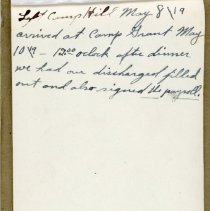 Left Camp Hill May 8\19
arrived at Camp Grant May
10\19 - 12:00 oclock after dinner
we had our discharged filled
out and also signed the payroll.